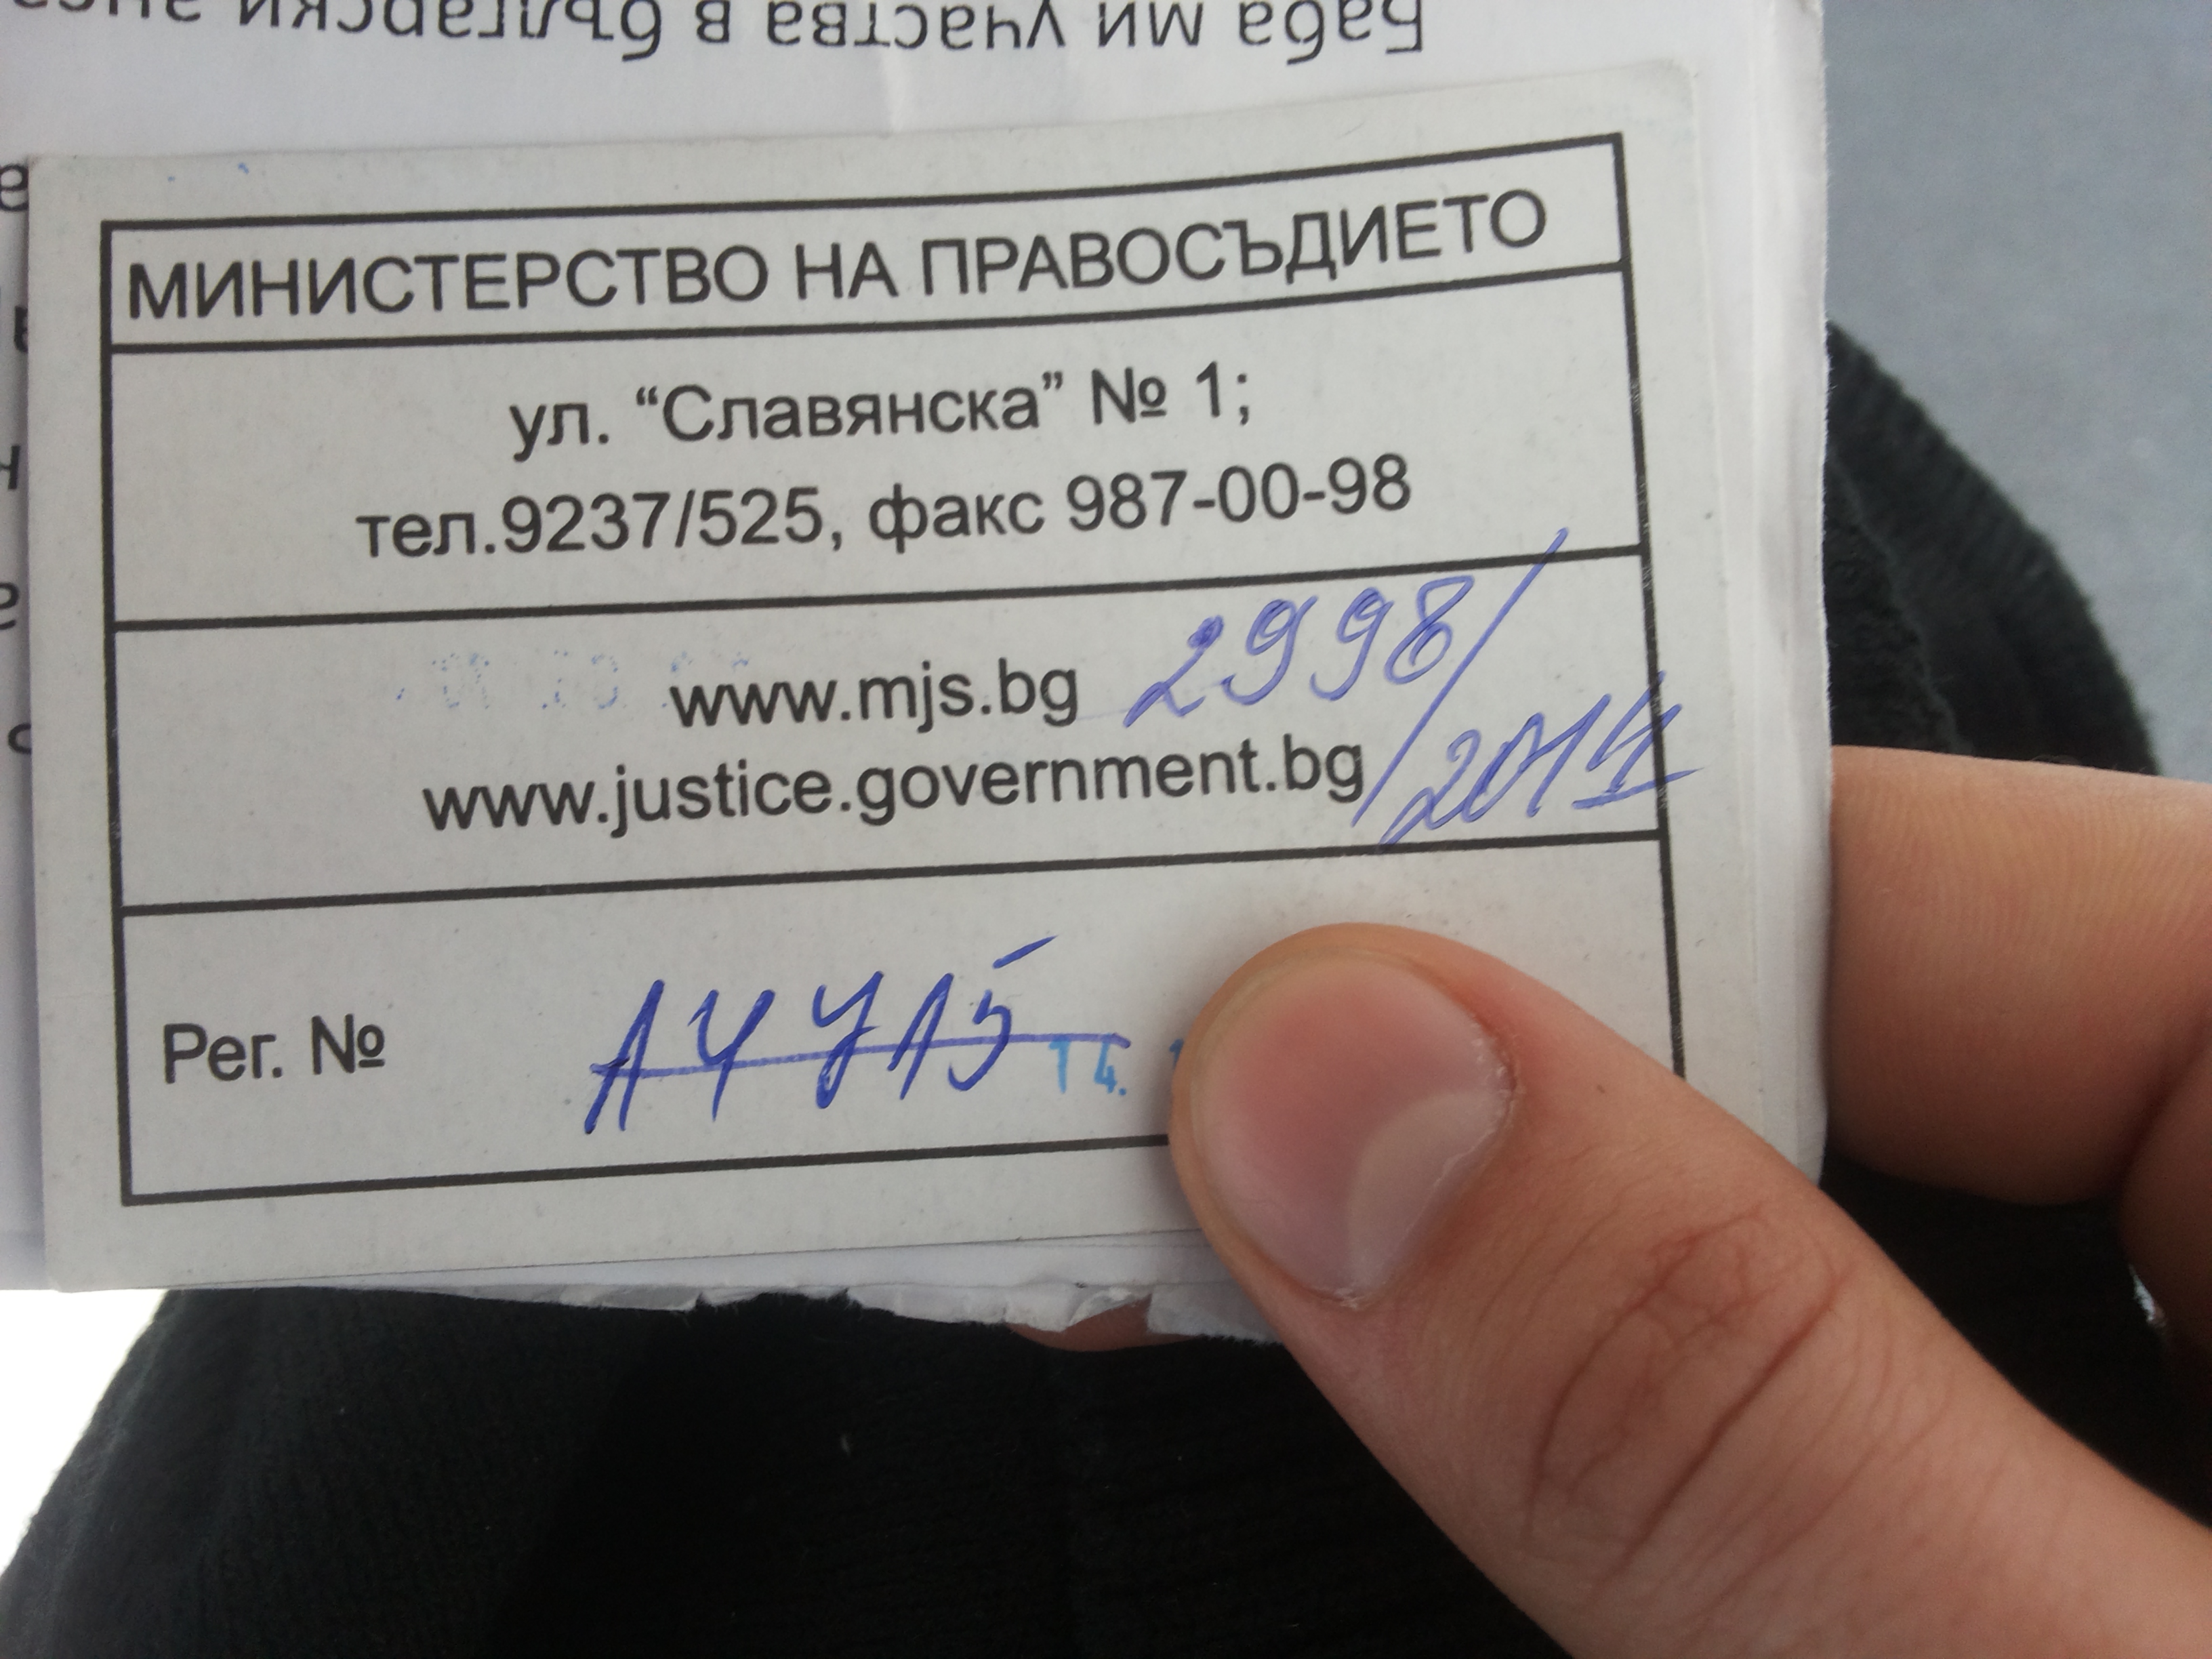 Баба ми участва в български
МИНИСТЕРСТВО НА ПРАВОСЪДИЕТО
ул. “Славянска” № 1;
тел.9237/525, факс 987-00-98
www.mjs.bg 2998/
www.justice.government.bg 2014
Рег. №
14.